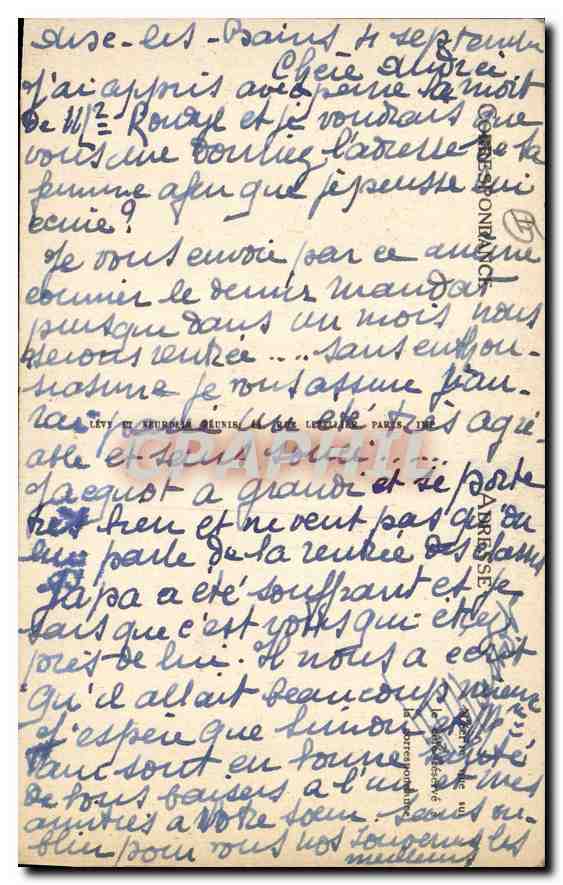 -les-Bains 4 septembre
Chère
J'ai appris avec peine la mort
de Mr Rouzé et je voudrais que
vous me donniez l'adresse de sa
femme afin que je puisse lui
écrire?
Je vous envoie par ce même
courrier le dernier mandat
puisque dans un mois nous
serons rentrée .... sans enthou-
siasme je vous assure j'au-
rai passé un été très agré-
able et sans souci.....
Jacquot a grandi et se porte
très bien et ne veut pas qu'on
lui parle de la rentrée des classes
Papa a été souffrant et je
sais que c'est vous qui étiez
près de lui. Il nous a écrit
qu'il allait beaucoup mieux
J'espère que Simon et Mr
sont en bonne santé
De bons baisers à mes
amitiés à votre sœur sans ou-
blier pour vous nos souvenirs les
meilleurs
CORRESPONDANCE
ADRESSE
LÉVY ET NEURDEIN RÉUNIS, 44, RUE LETELLIER, PARIS, IMP.
GRAPHIL
le
réservé
la correspondance